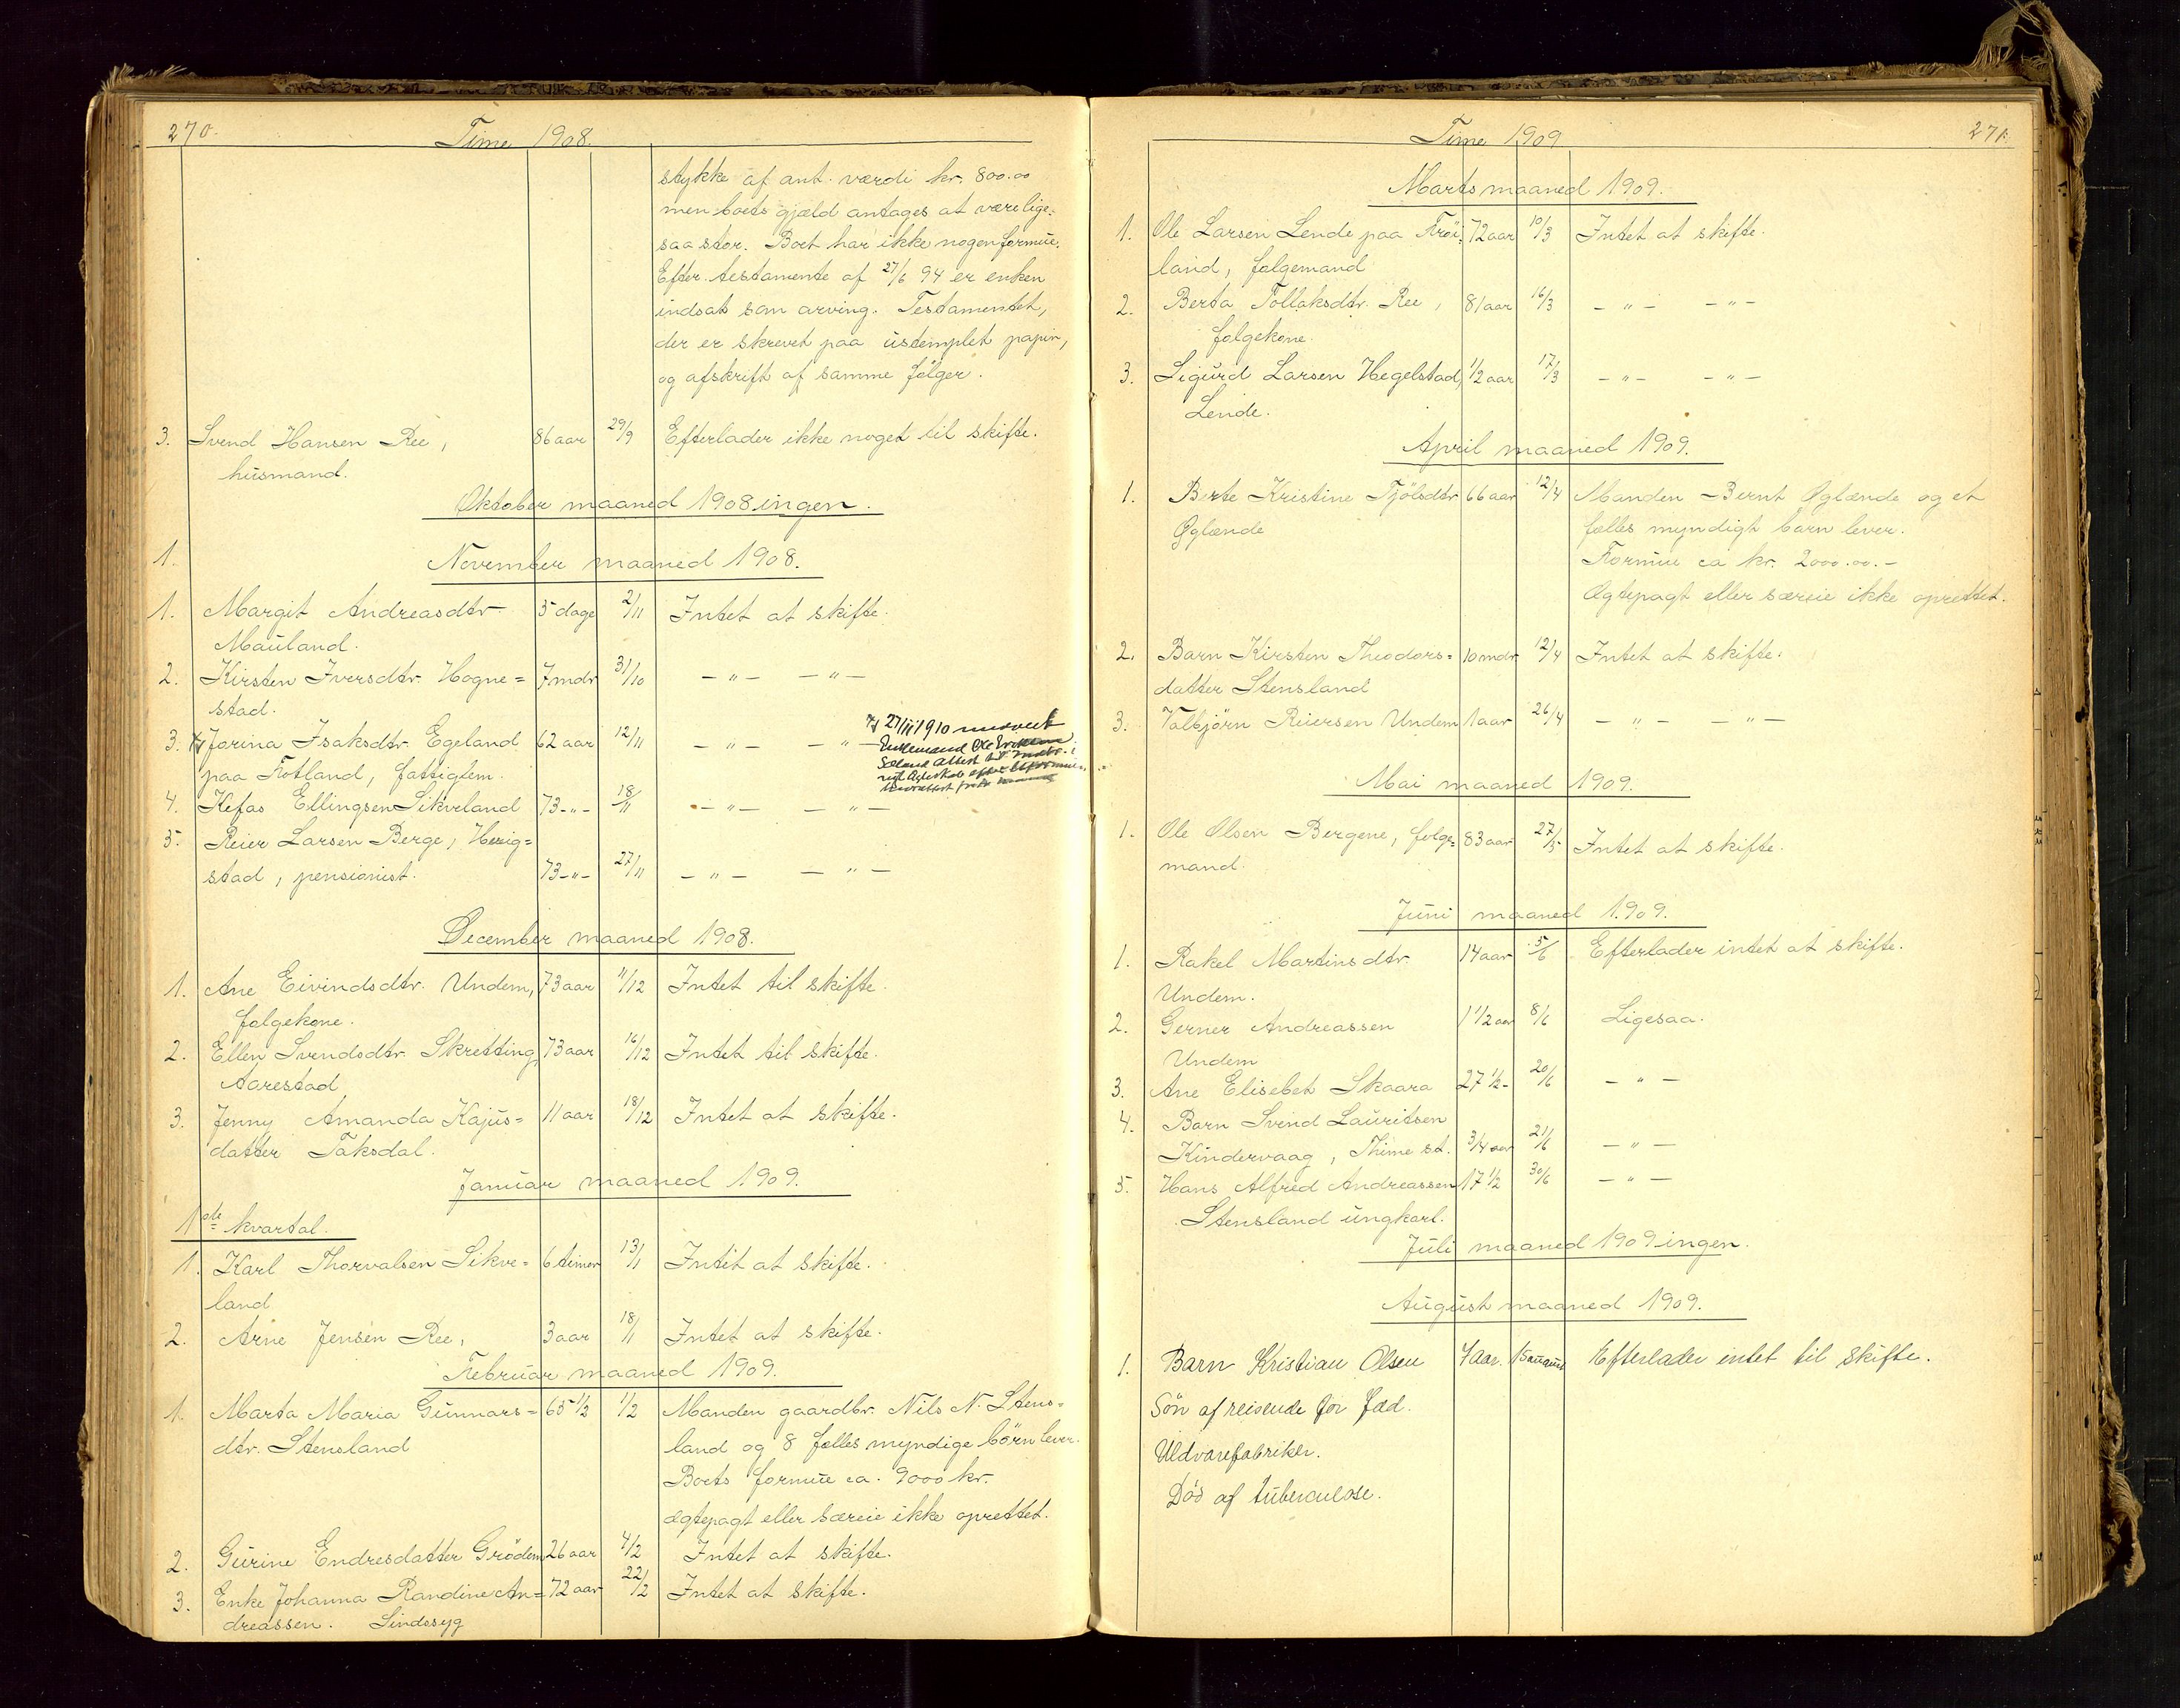 270.
Time 1908.
stykke af ant. værdi kr. 800.00
men boets gjæld antages at være lige-
saa stor. Boet har ikke nogen formue.
Efter testamente af 27/6 94 er enken
indsat som arving. Testamentet,
der er skrevet paa ustemplet papir,
og afskrift af samme følger.
3. Svend Hansen Ree, 86 aar 29/9 Efterlader ikke noget til skifte.
husmand.
Oktober maaned 1908 ingen.
1. November maaned 1908.
1. Margit Andreasdtr. 5 dage 2/11 Intet at skifte.
Mauland.
2. Kirsten Iversdtr. Hogne= 7 mdr 31/10 - " - - " -
stad.
3. Jorina Isaksdtr. Egeland 62 aar 12/11 - " - - " -
27/11 1910
Enkemand Ole
attest til
paa Fotland, fattiglem.
4. Kefas Ellingsen Sikveland 73 - " - 18/11 - " - - " -
5. Reier Larsen Berge, Herig=
stad, pensionist. 73 - " - 27/11 - " - - " -
December maaned 1908.
1. Ane Eivindsdtr. Undem, 73 aar 11/12 Intet til skifte.
folgekone.
2. Ellen Svendsdtr. Skretting, 73 aar 16/12 Intet til skifte.
Aarestad
3. Jenny Amanda Kajus= 11 aar 18/12 Intet at skifte.
datter Taksdal.
Januar maaned 1909.
1ste kvartal.
1. Karl Thorvalsen Sikve= 6 timer 13/1 Intet at skifte.
land
2. Arne Jensen Ree, 3 aar 18/1 Intet at skifte.
Februar maaned 1909.
1. Marta Maria Gunnars= 65 1/2 1/2 Manden gaardbr. Nils N. Stens=
dtr. Stensland land og 8 fælles myndige børn lever.
Boets formue ca. 9000 kr.
Ægtepagt eller særeie ikke oprettet.
2. Gurine Endresdatter Grødem 26 aar 4/2 Intet at skifte.
3. Enke Johanna Randine An= 72 aar 22/2 Intet at skifte.
dreassen. Sindssyg
271.
Time 1909
Marts maaned 1909.
1. Ole Larsen Lende paa Frøi= 72 aar 10/3 Intet at skifte.
land, folgemand
2. Berta Tollaksdtr. Ree, 81 aar 16/3 - " - - " -
folgekone.
3. Sigurd Larsen Hegelstad, 1/2 aar 17/3 - " - - " -
Lende.
April maaned 1909.
1. Berte Kristine Tjølsdtr 66 aar 12/4 Manden Bernt Øglænde og et
Øglænde fælles myndigt barn lever.
Formue ca kr. 2000.00.-
Ægtepagt eller særeie ikke oprettet.
2. Barn Kirsten Theodors= 10 mdr. 12/4 Intet at skifte.
datter Stensland
3. Valbjørn Reiersen Undem 1 aar 26/4 - " - - " -
Mai maaned 1909.
1. Ole Olsen Bergene, folge= 83 aar 27/5 Intet at skifte.
mand.
Juni maaned 1909.
1. Rakel Martinsdtr. 14 aar 5/6 Efterlader intet at skifte.
Undem.
2. Gerner Andreassen 1 1/2 aar 8/6 Ligesaa.
Undem
3. Ane Elisebet Skaara 27 1/2 - 20/6 - " -
4. Barn Svend Lauritsen
Kindervaag, Thime st. 3/4 aar 21/6 - " -
5. Hans Alfred Andreassen 17 1/2 30/6 - " -
Stensland ungkarl.
Juli maaned 1909 ingen.
August maaned 1909.
1. Barn Kristian Olsen 4 aar. 15 august Efterlader intet til skifte.
Søn af reisende for Jæd.
Uldvarefabriker.
Død af tuberculose.